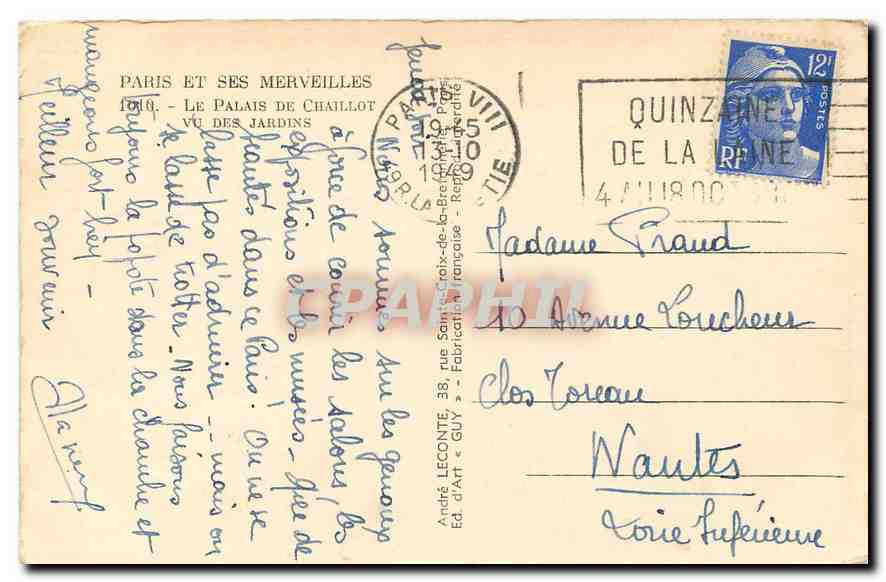 PARIS ET SES MERVEILLES
1010. - LE PALAIS DE CHAILLOT
VU DES JARDINS
Jeudi soir
Nous sommes sur les genoux
à force de courir les salons, les
expositions et les musées - Que de
beautés dans ce Paris! On ne se
lasse pas d'admirer -- mais on
se lasse de trotter - Nous faisons
toujours la popote dans la chambre et
mangeons fort bien -
Meilleur souvenir
André LECONTE, 38, rue Sainte-Croix-de-la-Bretonnerie, Paris
Ed. d'Art « GUY » - Fabrication française - Reprod. interdite
PARIS VIII
19-45
13-10
1949
49 R. LA BOETIE
QUINZAINE
DE LA LAINE
4 AU 18 OC
12F
POSTES
RF
Madame Praud
10 Avenue Loucheur
Clos Toreau
Nantes
Loire Inférieure
CPAPHIL